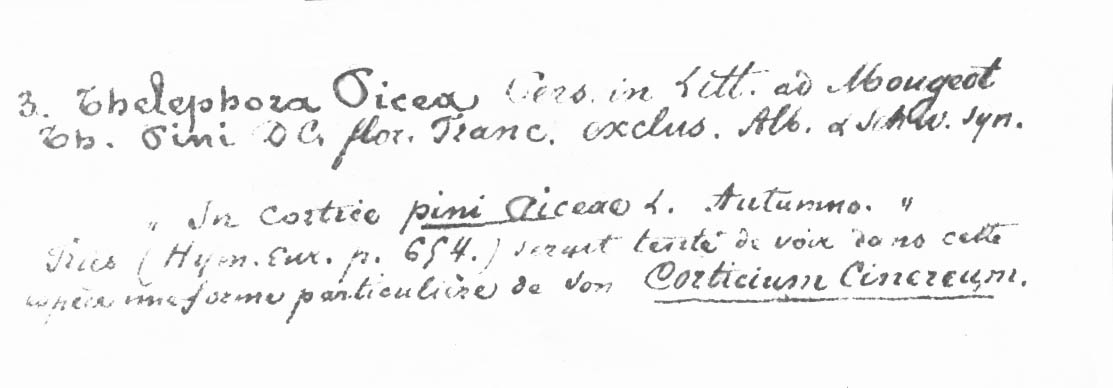 3. Thelephora Picea Pers. in Litt. ad Mougeot
Th. Pini DC. flor. Franc. exclus. Alb. & Schw. syn.
„ In cortice pini piceae L. Autumno. "
Fries (Hym. Eur. p. 654.) serait tenté de voir dans cette
espèce une forme particulière de son Corticium Cinereum.